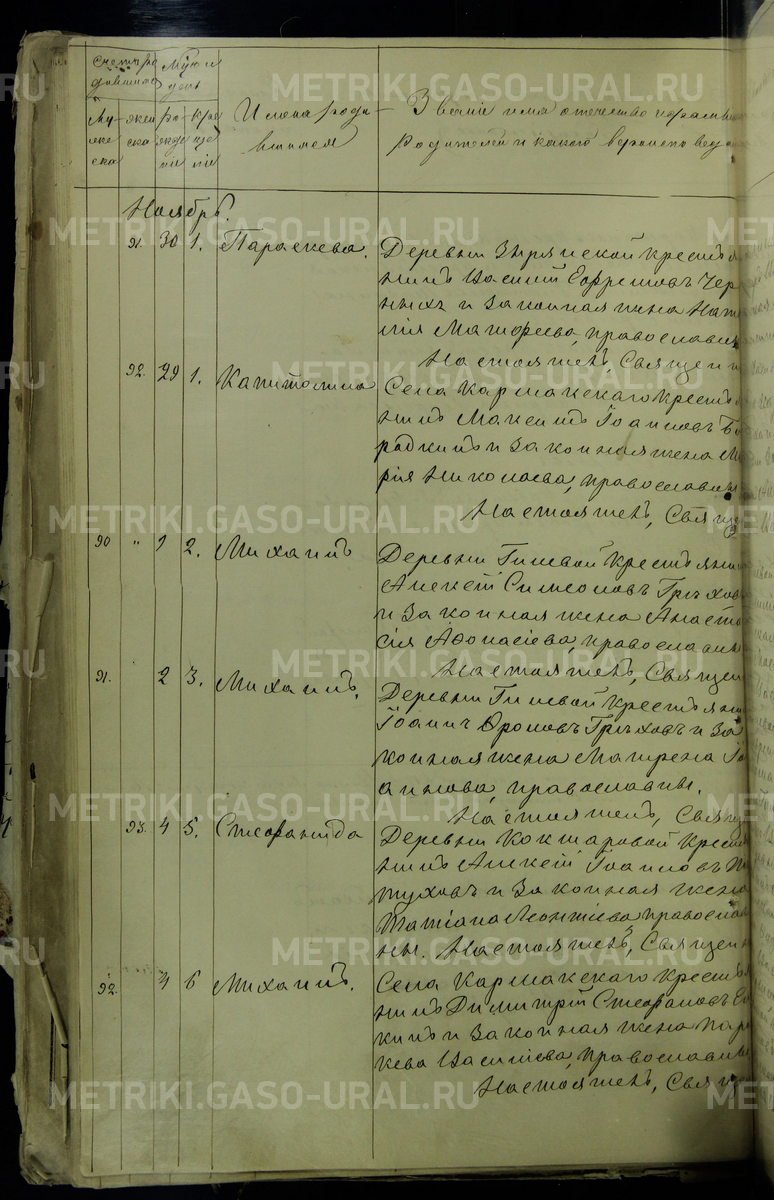 Счетъ ро Мѣс и
дившихс день
Му- женс ро- кре Имена роди- Званіе имя отечество и фамил
жеска ска жде ще вшихся родителей и какого вероиспо вед
ніе ніе
METRIKI.GASO-URAL.RU
Ноябрь.
91. 30 1. Параскева. Деревни Зырянской крестья
нинъ Василій Ефремовъ Чер
ныхъ и законная жена Ната
лія Матфеева, православн
Настоятель, Священ
92. 29 1. Капитолина Села Кармакскаго крестья
нинъ Максимъ Іоанновъ
и законная жена Ма
рія Николаева, православны
Настоятель, Свяще
90 " 1 2. Михаилъ Деревни Гилевой крестьяни
Алексѣй Симеоновъ Грѣховъ
и законная жена Анаста
сія Аѳонасіева, православны
Настоятель, Священ
91. 2 3. Михаилъ. Деревни Гилевой крестьяни
Іоаннъ Фроловъ Грѣховъ и за
конная жена Матрена Іо
аннова, православны.
Настоятель, Свящ
93. 4 5. Стефанида Деревни Кокшаровой Крестья
нинъ Алексѣй Іоанновъ Пѣ
туховъ и законная жена
Татіана Леонтіева, православ
ны. Настоятель, Священ
92. 4 6 Михаилъ. Села Кармакскаго крестья
нинъ Димитрій Стефановъ
кинъ и законная жена Пара
кева Василіева, православны
Настоятель, Свящ
METRIKI.GASO-URAL.RU